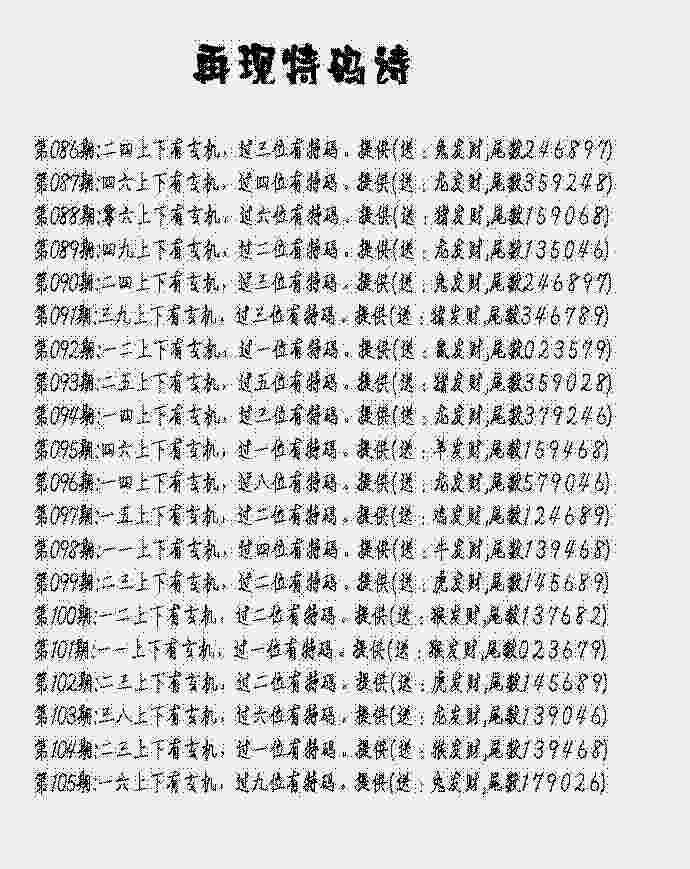 再现特码诗
第086期:二四上下有玄机，过三位有特码。提供(送：兔发财,尾数246897)
第087期:四六上下有玄机，过四位有特码。提供(送：龙发财,尾数359248)
第088期:零六上下有玄机，过六位有特码。提供(送：猪发财,尾数159068)
第089期:四九上下有玄机，过二位有特码。提供(送：龙发财,尾数135046)
第090期:二四上下有玄机，过三位有特码。提供(送：兔发财,尾数246897)
第091期:三九上下有玄机，过三位有特码。提供(送：猪发财,尾数346789)
第092期:一二上下有玄机，过一位有特码。提供(送：鼠发财,尾数023579)
第093期:二五上下有玄机，过五位有特码。提供(送：猪发财,尾数359028)
第094期:一四上下有玄机，过二位有特码。提供(送：龙发财,尾数379246)
第095期:四六上下有玄机，过一位有特码。提供(送：羊发财,尾数159468)
第096期:一四上下有玄机，过八位有特码。提供(送：龙发财,尾数579046)
第097期:一五上下有玄机，过二位有特码。提供(送：鸡发财,尾数124689)
第098期:一一上下有玄机，过四位有特码。提供(送：牛发财,尾数139468)
第099期:二三上下有玄机，过二位有特码。提供(送：虎发财,尾数145689)
第100期:一二上下有玄机，过二位有特码。提供(送：猴发财,尾数137682)
第101期:一一上下有玄机，过一位有特码。提供(送：猴发财,尾数023679)
第102期:二三上下有玄机，过二位有特码。提供(送：虎发财,尾数145689)
第103期:三八上下有玄机，过六位有特码。提供(送：龙发财,尾数139046)
第104期:二三上下有玄机，过一位有特码。提供(送：猴发财,尾数139468)
第105期:一六上下有玄机，过九位有特码。提供(送：兔发财,尾数179026)